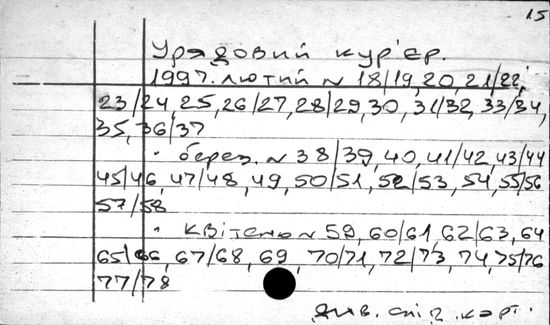 15
Урядовий кур'єр.
1997. лютий N 18/19, 20, 21/22,
23/24 25, 26/27, 28/29, 30, 31/32, 33/34,
35, 36/37
· берез. N 38/39, 40, 41/42, 43/44
45/46, 47/48, 49, 50/51, 52/53, 54, 55/56
57/58
· квітень N 59, 60/61, 62/63, 64
65/66, 67/68, 69, 70/71, 72/73, 74, 75/76
77/78
див. слід. карт.